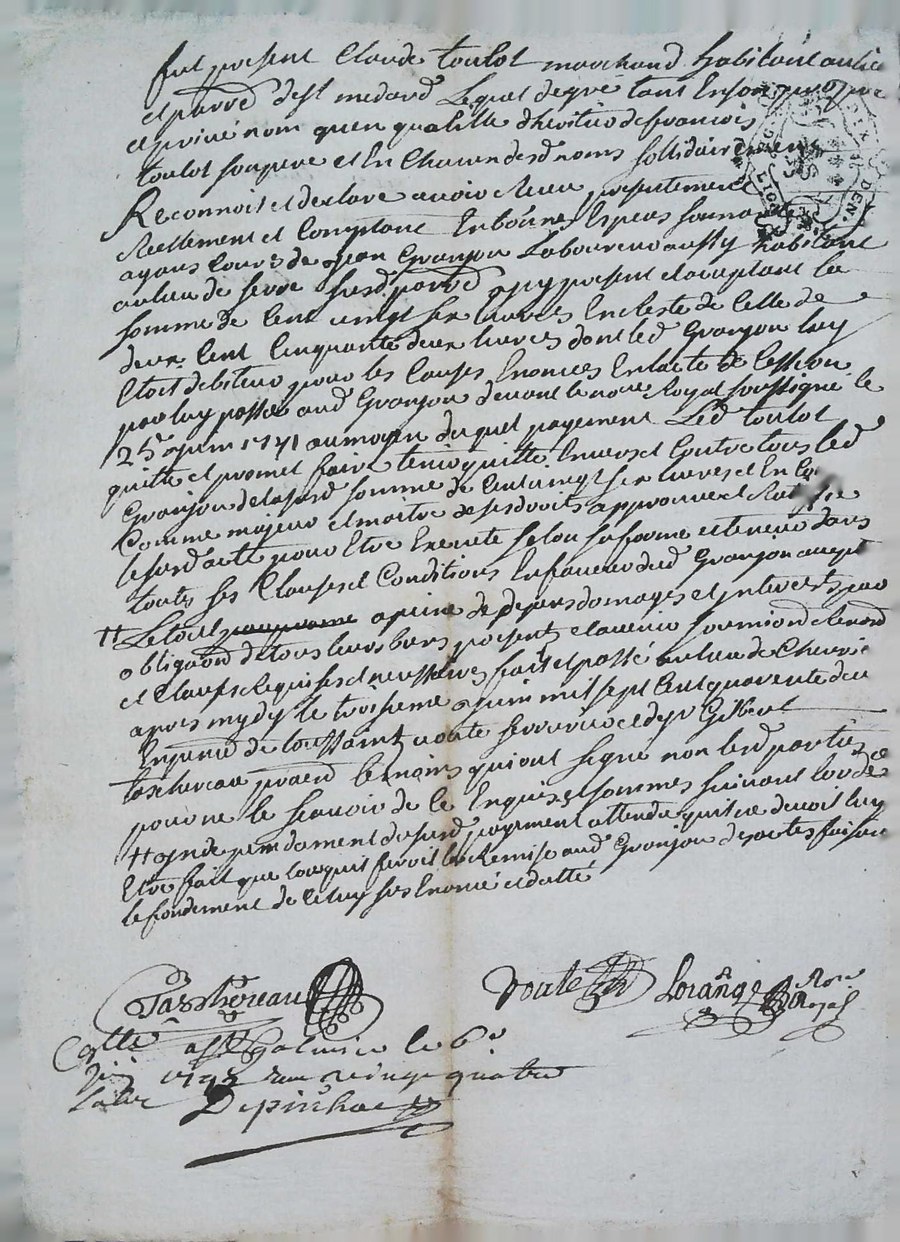 fut present Claude toulot marchand habitant au lieu
et parr͠e de st medard Lequel de gré tant En son propre
et privé nom qu'en quallitte d'heritier de françois
toulot son pere et En Chacun desd noms sollidairement
Reconnoit et declare avoir Receu presentement
Reellement et Comptant En bonnes Especes sonnantes
ayans Cours de Jean Granjon Laboureur aussy habitant
au lieu de susd parr͠e ycy present et acceptant la
somme de Cent vingt six livres En Reste de Celle de
deux Cent Cinquante deux livres dont led Granjon luy
Etoit debiteur pour les Causes Enoncées En l'acte de Cession
par luy passée aud Granjon devant le no͠re Royal soussigné le
25e juin 1741 au moyen duquel payement Led toulot
quitte et promet faire tenir quitte Envers et Contre tous led
Granjon de lasusd somme de Cent vingt six livres et En
Comme majeur et maitre de ses droits approuve et Ratiffie
le susd acte pour Etre Execute selon sa forme et teneur dans
toutes ses Clauses et Conditions En faveur dud Granjon
†† Le tout a peine de depens domages et interets par
obliga͠on de tous leurs biens presents et avenir soumiõn et renõ
et Clauses Requises et necessaires fait et passé au lieu de
apres mydy le troisieme juin mil sept Cent quarente deux
En presence de toussaint et de sr Gilbert
taschereau temoins qui ont signé non lesd parties
pour ne le scavoir de ce Enquis et sommes suivant l'ordce
†† du susd payement attendu qu'il ne devoit luy
Etre fait que lorsqu'il feroit la Remise aud Granjon des actes faisant
le fondement de Celuy sus Enoncé et datté
Taschereau Voute Lorange No͠re Royal
Collé a st Galmier le 6e
juin 1742 Reçu vingt quatre
Depinhac